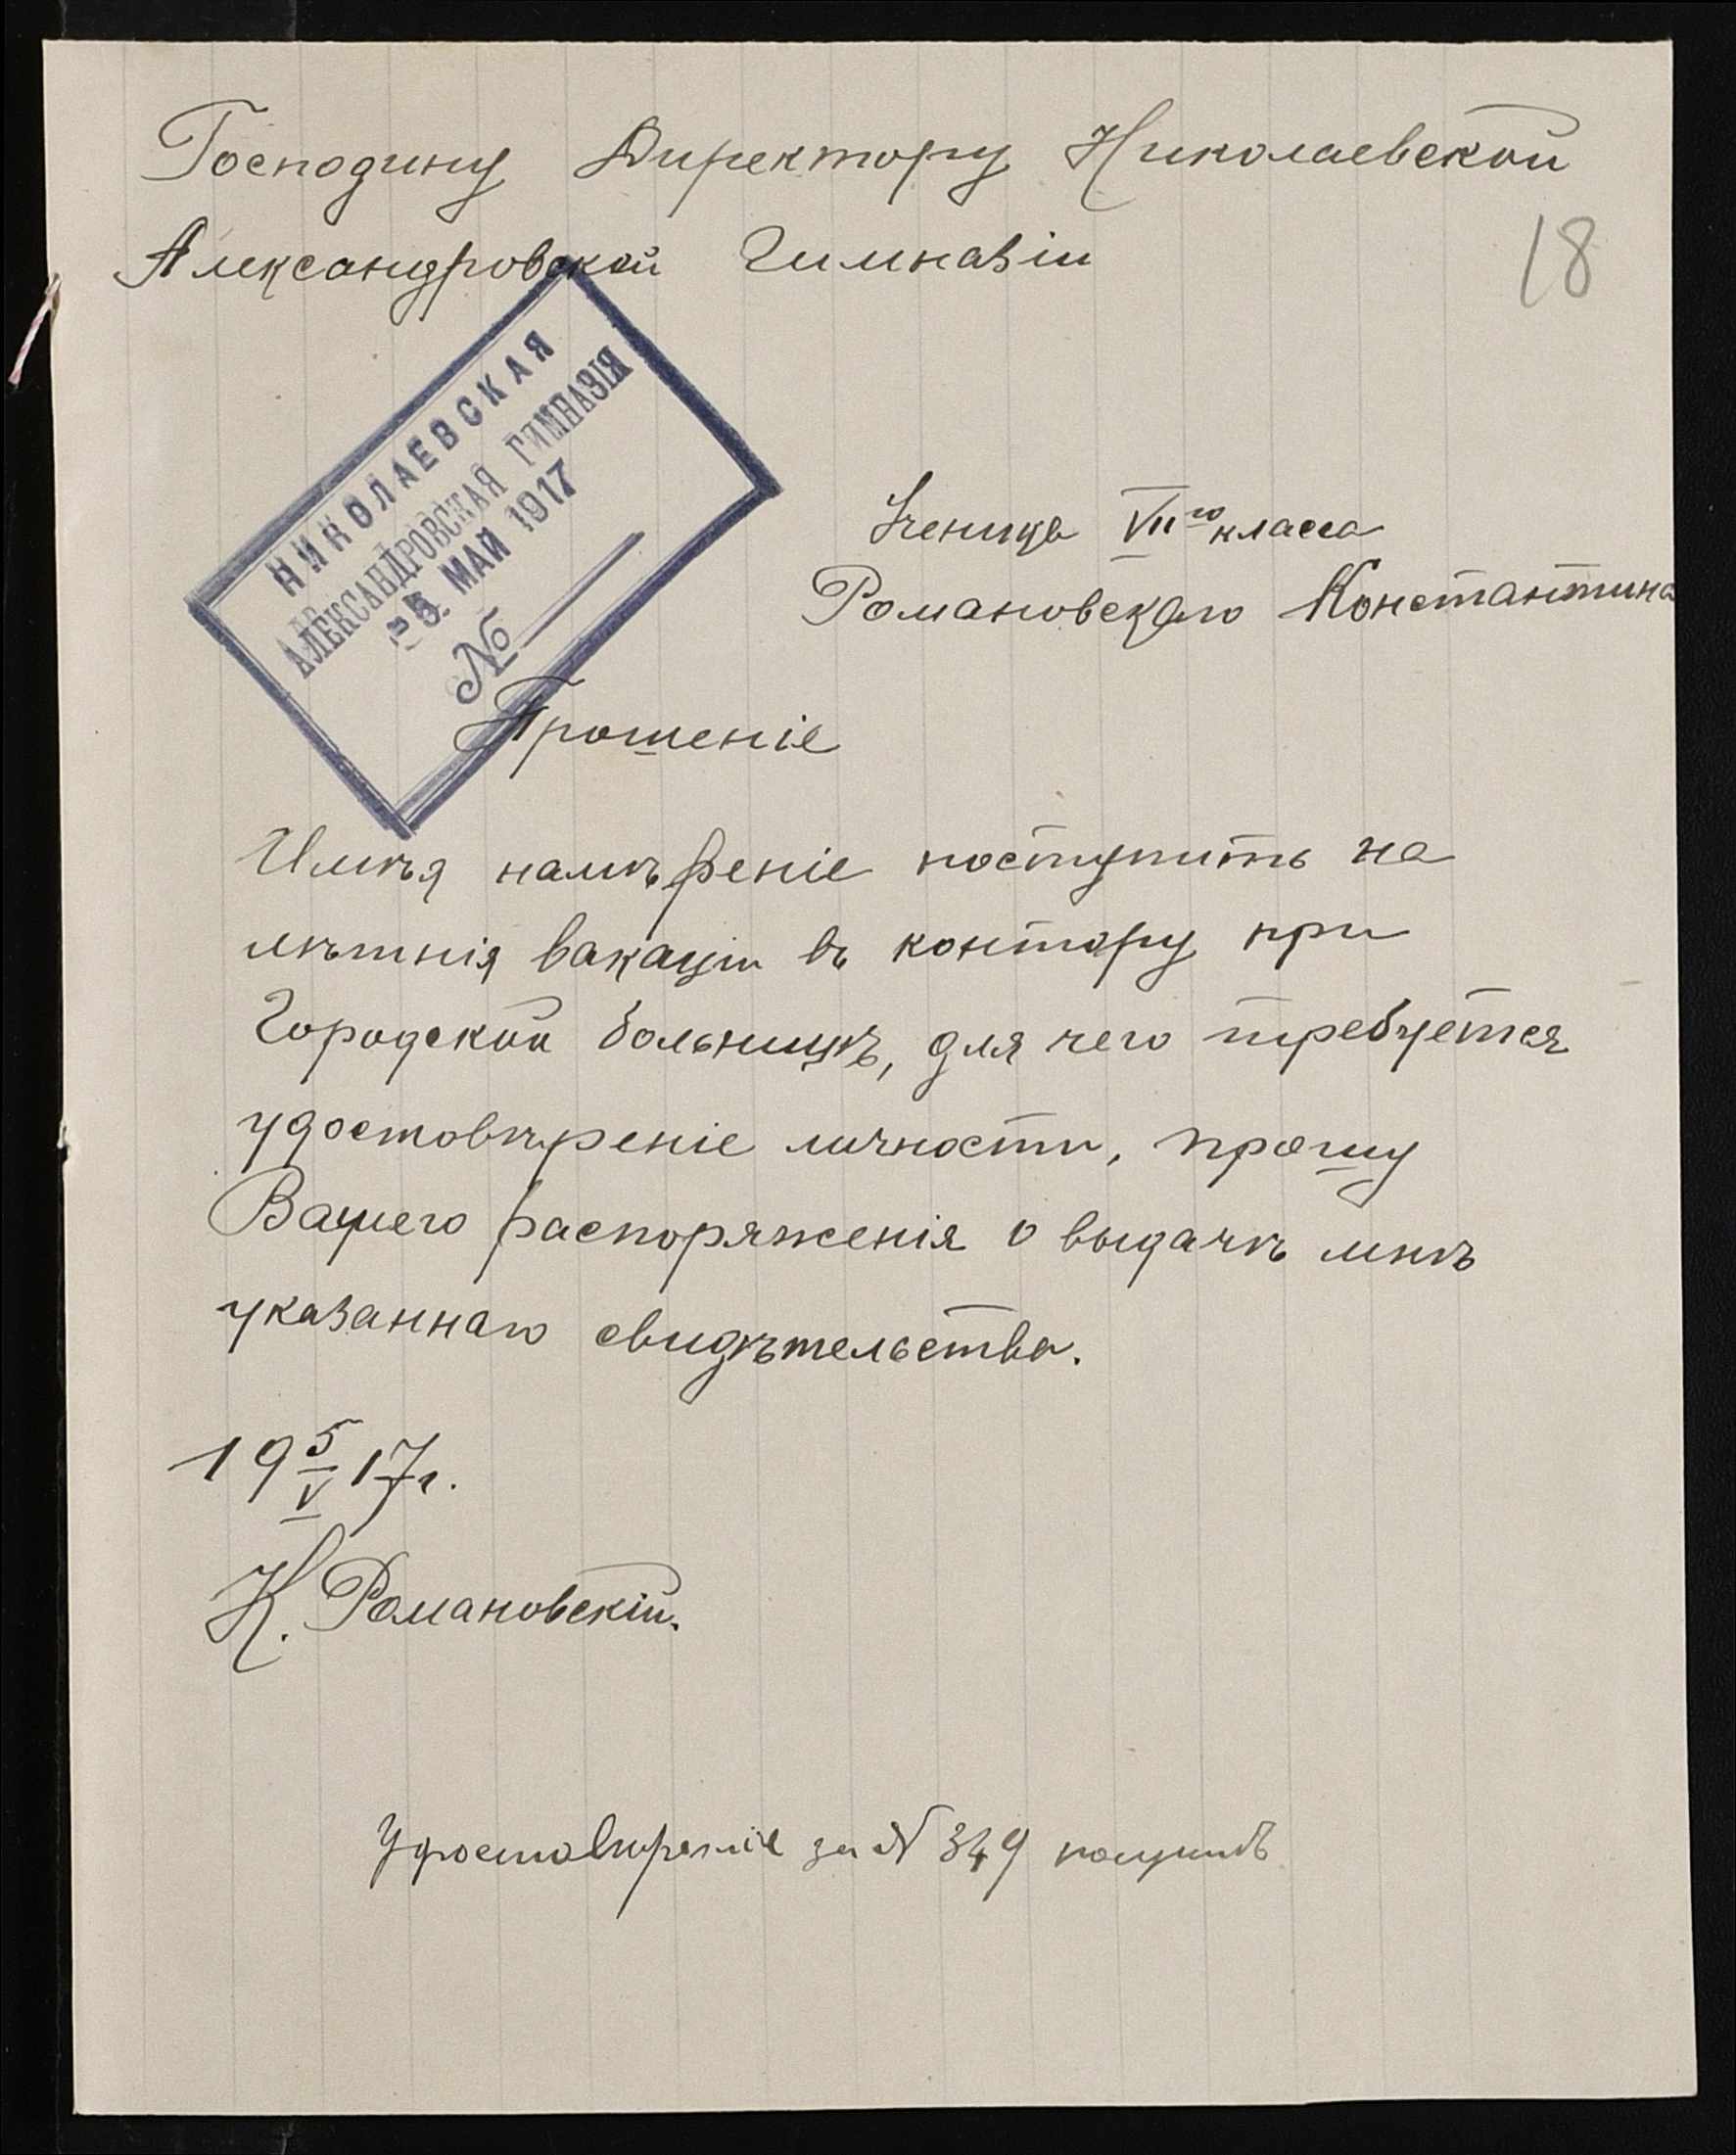 Господину Директору Николаевской
Александровской Гимназіи
18
НИКОЛАЕВСКАЯ
АЛЕКСАНДРОВСКАЯ ГИМНАЗІЯ
5. МАЙ 1917
№
Ученика VII го класса
Романовскаго Константина
Прошеніе
Имѣя намѣреніе поступить на
лѣтнія вакаціи въ контору при
Городской больницѣ, для чего требуется
удостовѣреніе личности, прошу
Вашего распоряженія о выдачѣ мнѣ
указаннаго свидѣтельства.
19 5/V 17 г.
К. Романовскій.
Удостовѣреніе за № 349 получилъ